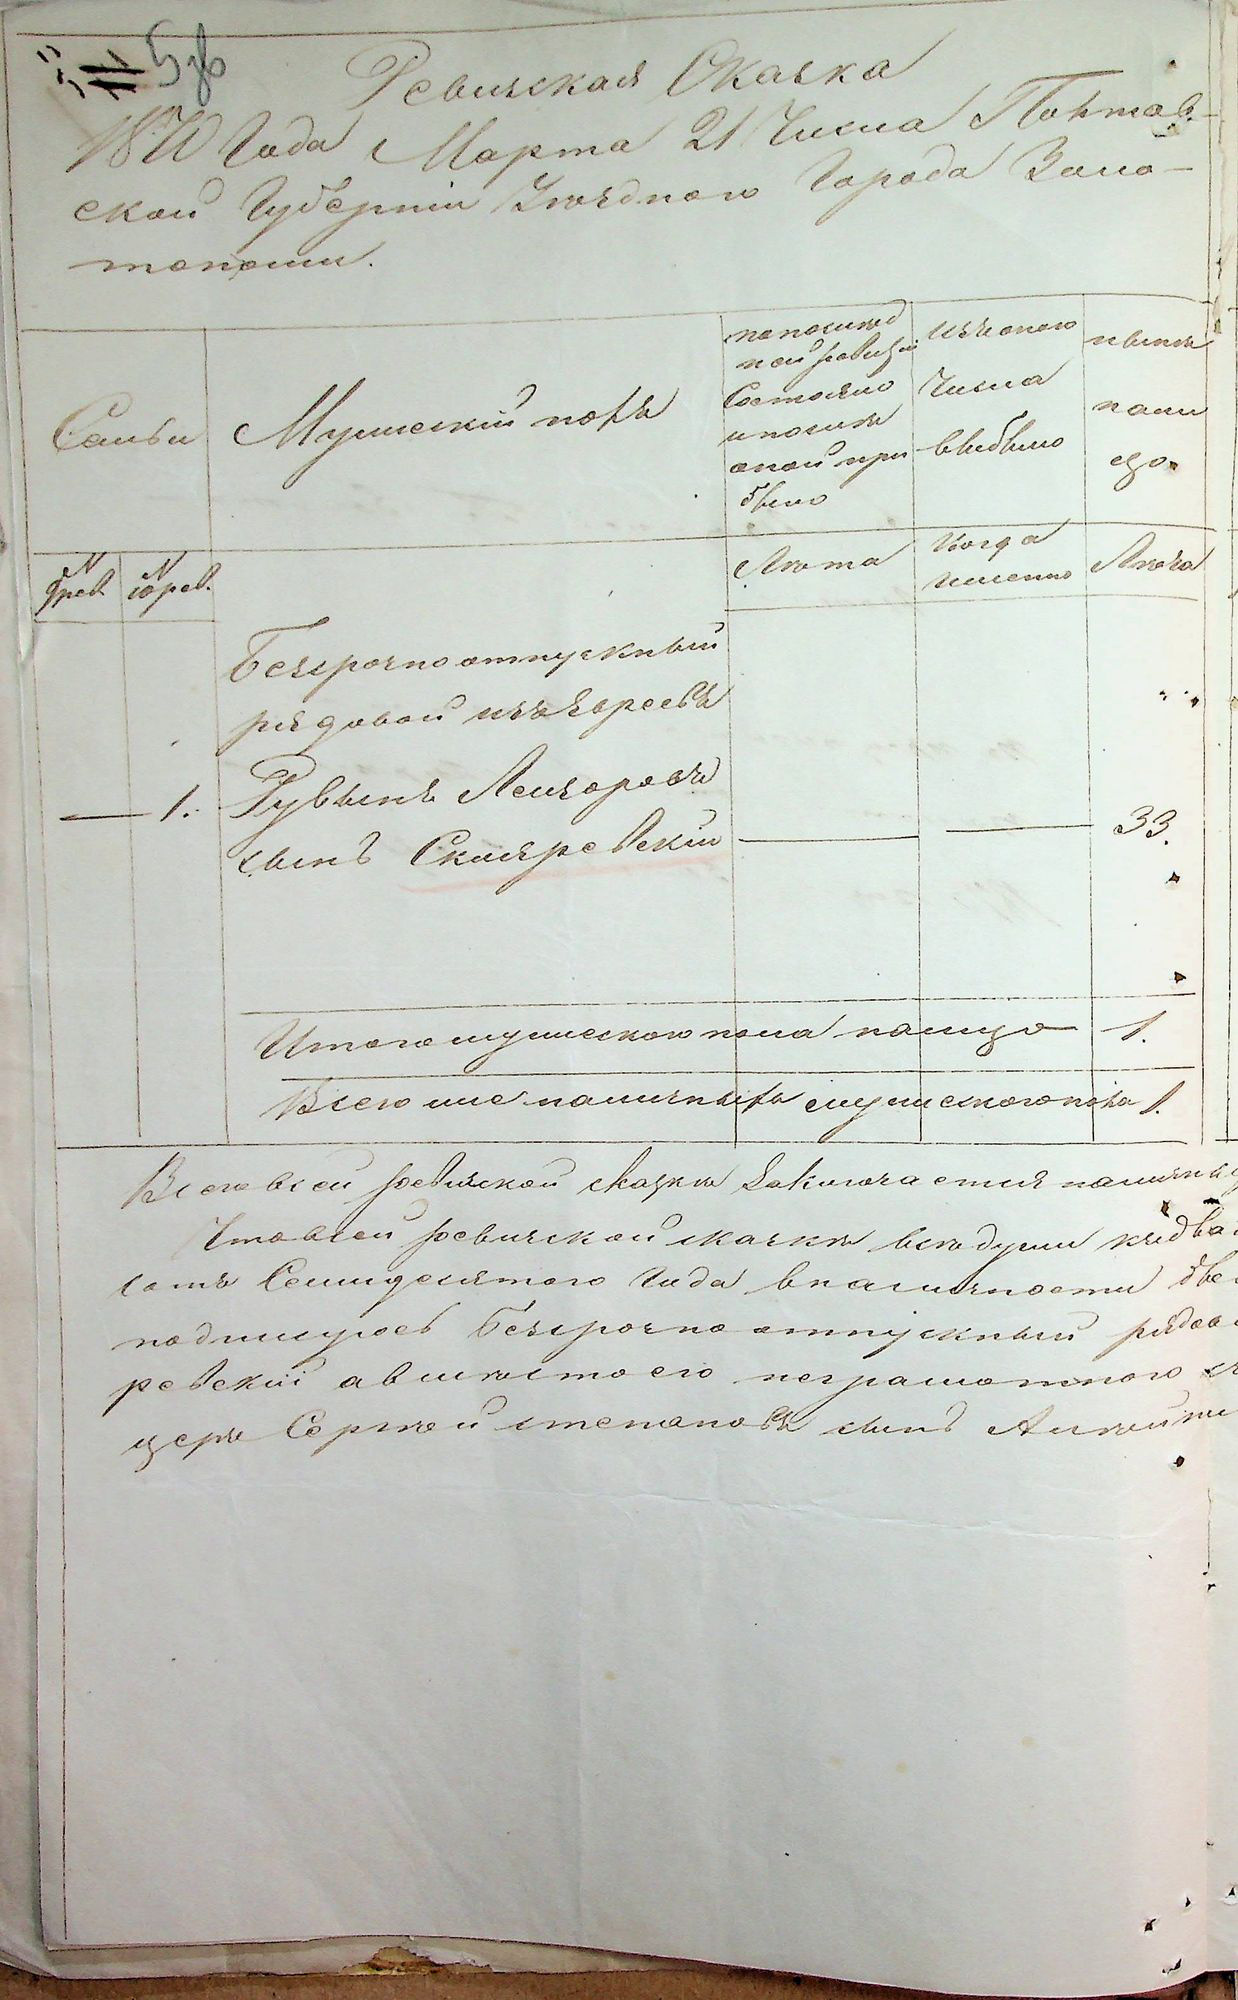 5 зв
Ревизская Сказка
1870 Года Марта 21 Числа Полтав-
ской Губерніи Уезднаго Города Золо-
тоноши.
Семьи
Мужескій полъ
по послед
ней ревизіи
Состояло
и после
оной при
было
изъ оного
Числа
выбыло
ныне
нали
цо.
№
9 рев.
№
10 рев.
Лета
Когда
именно
Лета
Безсрочноотпускный
рядовой изъ Евреевъ
1. Рувинъ Лейзоровъ
сынъ Скляревскій
33.
Итого мужеского пола налицо 1.
Всего же наличныхъ мужеского пола 1.
Всего в сей ревизской сказке Заключается наличны
Что в сей ревизской сказке все души къ
сотъ Семидесятого Года в наличности
подписуюсь безсрочно отпускный рядов
ревскій а вместо его неграмотного
церъ Сергей степановъ сынъ